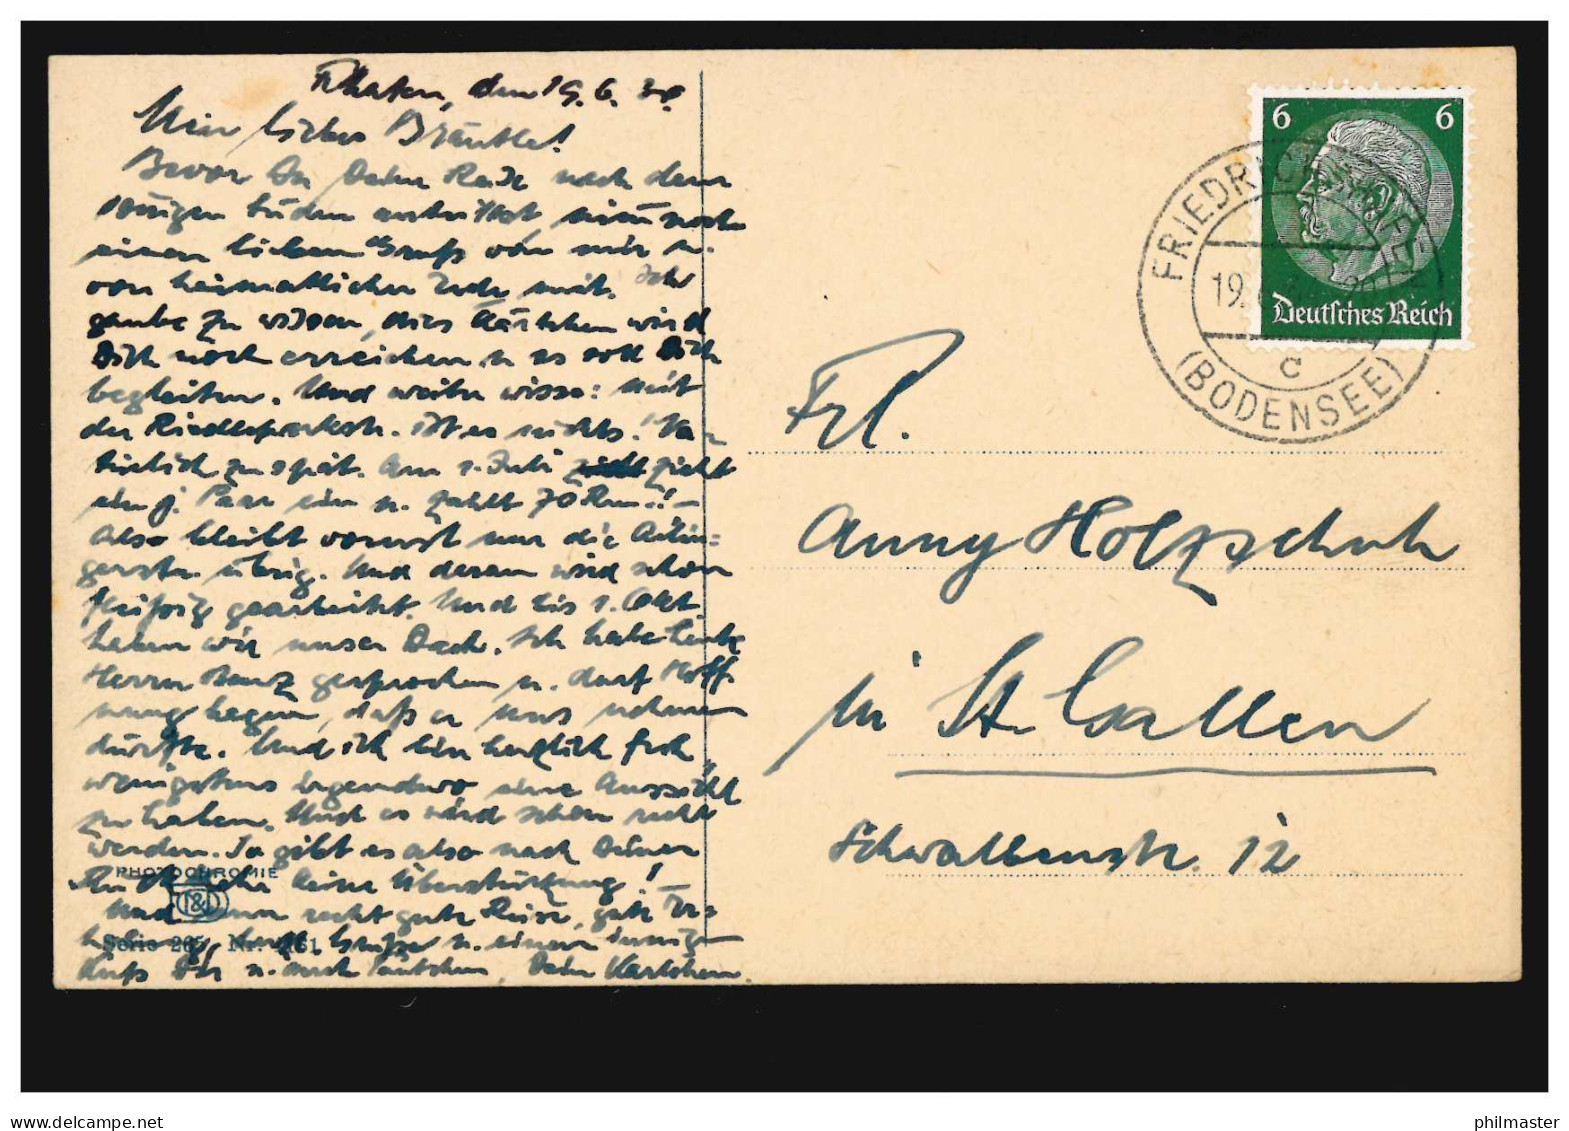 F'hafen, den 19. 6. 38.
Mein liebes Bräutle!
Bevor Du Deine Reise nach dem
sonnigen Süden antrittst, nimm noch
einen lieben Gruß von mir u.
von heimatlicher Erde mit. Ich
glaube zu wissen, dies Kärtchen wird
Dich noch erreichen u. es soll Dich
begleiten. Und weiter wisse: mit
der Riedleparkstr. ist es nichts! Na-
türlich zu spät. Am 1. Juli zieht
ein j. Paar ein u. zahlt 70 Rm.!! –
Also bleibt vorerst nur die
übrig. Und daran wird schon
fleißig gearbeitet. Und bis 1. Okt.
haben wir unser Dach. Ich habe heute
Herrn gesprochen u. darf Hoff-
nung hegen, daß er uns nehmen
dürfte. Und ich bin herzlich froh,
wenigstens irgendwo eine Aussicht
zu haben. Und es wird schon recht
werden. Ja gibt es also nach Deiner
keine Überstürzung!
Und nun recht gute Reise, gute
Grüße u. einen innig-
Dir u. auch Dein Karlchen.
PHOTOCHROMIE
Serie 265, Nr. 4181
6 6
Deutsches Reich
FRIEDRICHSHAFEN
19.
c
(BODENSEE)
Frl.
Anny Holzschuh
in St. Gallen
Schwalbenstr. 12
delcampe.net
philmaster